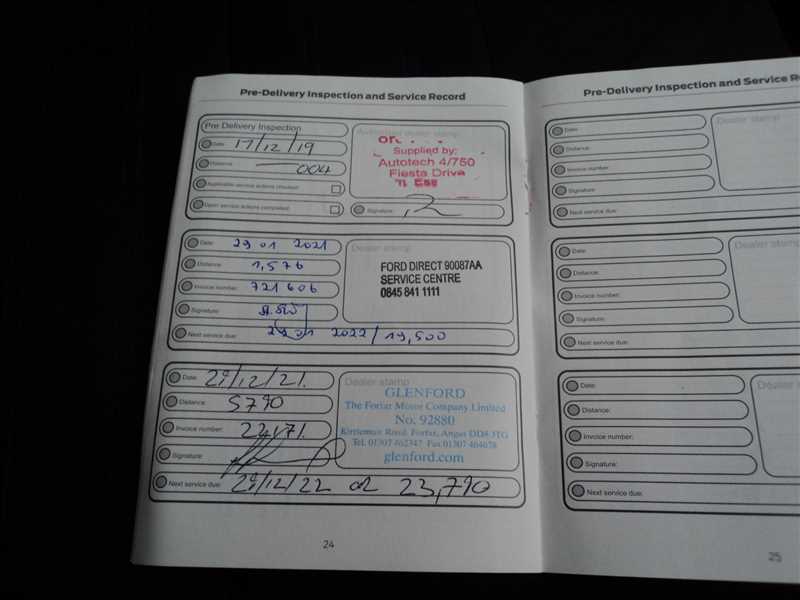 Pre-Delivery Inspection and Service Record
Pre Delivery Inspection
Date: 17/12/19
Distance: 004
Applicable service actions checked:
Open service actions completed:
Authorised dealer stamp
Supplied by:
Autotech 4/750
Fiesta Drive
Signature:
Date: 29 01 2021
Distance: 1,576
Invoice number: 721606
Signature:
Next service due: 29 01 2022/19,500
Dealer stamp
FORD DIRECT 90087AA
SERVICE CENTRE
0845 841 1111
Date: 29/12/21.
Distance: 5790
Invoice number: 22171.
Signature:
Next service due: 29/12/22 or 23,790
Dealer stamp
GLENFORD
The Forfar Motor Company Limited
No. 92880
Kirriemuir Road, Forfar, Angus DD8 3TG
Tel. 01307 462347 Fax 01307 464678
glenford.com
24
Pre-Delivery Inspection and Service
Date:
Distance:
Invoice number:
Signature:
Next service due:
Dealer stamp
Date:
Distance:
Invoice number:
Signature:
Next service due:
Dealer
Date:
Distance:
Invoice number:
Signature:
Next service due:
Dealer
25